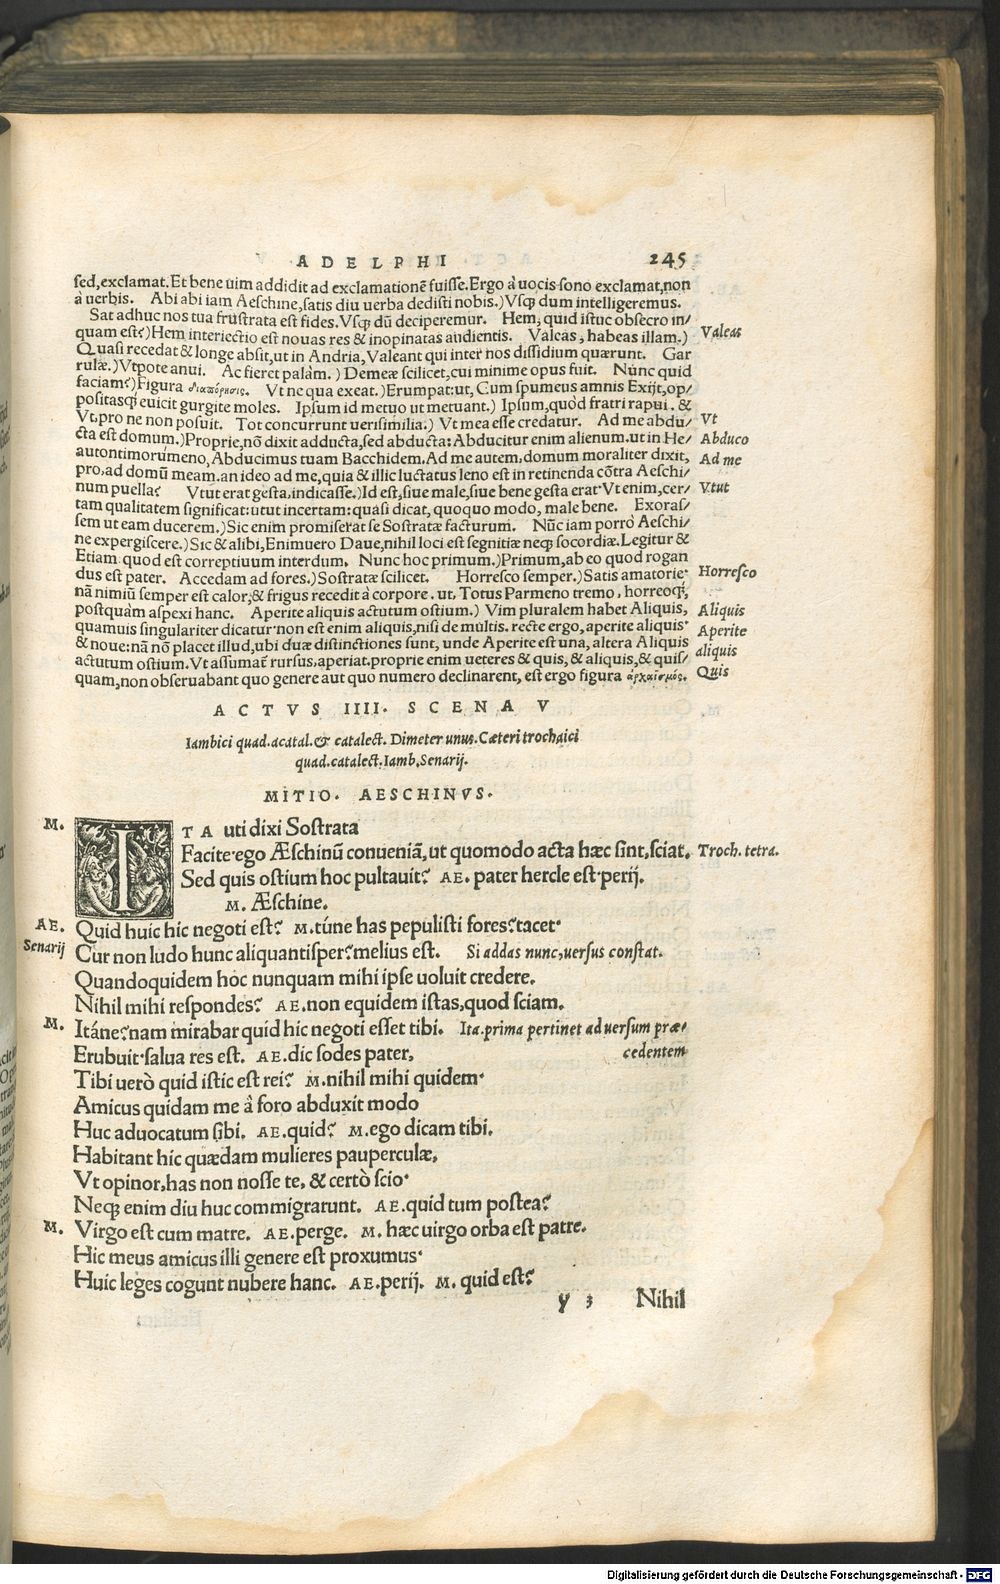 ADELPHI 245
sed, exclamat. Et bene uim addidit ad exclamationē fuisse. Ergo à uocis sono exclamat, non
à uerbis. Abi abi iam Aeschine, satis diu uerba dedisti nobis.) Vsq; dum intelligeremus.
Sat adhuc nos tua frustrata est fides. Vsq; dū deciperemur. Hem, quid istuc obsecro in/
quam est?) Hem interiectio est nouas res & inopinatas audientis. Valeas, habeas illam.) Valeas
Quasi recedat & longe absit, ut in Andria, Valeant qui inter nos dissidium quærunt. Gar
rulæ.) Vtpote anui. Ac fieret palàm.) Demeæ scilicet, cui minime opus fuit. Nunc quid
faciam?) Figura διαπόρησις. Vt ne qua exeat.) Erumpat: ut, Cum spumeus amnis Exijt, op/
positasq; euicit gurgite moles. Ipsum id metuo ut metuant.) Ipsum, quòd fratri rapui. &
Vt, pro ne non posuit. Tot concurrunt uerisimilia.) Vt mea esse credatur. Ad me abdu/ Vt
cta est domum.) Proprie, nō dixit adducta, sed abducta: Abducitur enim alienum. ut in He/ Abduco
autontimorumeno, Abducimus tuam Bacchidem. Ad me autem, domum moraliter dixit, Ad me
pro, ad domū meam. an ideo ad me, quia & illic luctatus leno est in retinenda cōtra Aeschi/
num puella? Vtut erat gesta, indicasse.) Id est, siue male, siue bene gesta erat. Vt enim, cer/ Vtut
tam qualitatem significat: utut incertam: quasi dicat, quoquo modo, male bene. Exoras/
sem ut eam ducerem.) Sic enim promiserat se Sostratæ facturum. Nūc iam porrò Aeschi/
ne expergiscere.) Sic & alibi, Enimuero Daue, nihil loci est segnitiæ neq; socordiæ. Legitur &
Etiam quod est correptiuum interdum. Nunc hoc primum.) Primum, ab eo quod rogan
dus est pater. Accedam ad fores.) Sostratæ scilicet. Horresco semper.) Satis amatorie. Horresco
nā nimiū semper est calor, & frigus recedit à corpore. ut, Totus Parmeno tremo, horreoq;,
postquàm aspexi hanc. Aperite aliquis actutum ostium.) Vim pluralem habet Aliquis, Aliquis
quamuis singulariter dicatur. non est enim aliquis, nisi de multis. recte ergo, aperite aliquis. Aperite
& noue: nā nō placet illud, ubi duæ distinctiones sunt, unde Aperite est una, altera Aliquis aliquis
actutum ostium. Vt assumat rursus, aperiat. proprie enim ueteres & quis, & aliquis, & quis/ Quis
quam, non obseruabant quo genere aut quo numero declinarent, est ergo figura ἀρχαϊσμός.
ACTVS IIII. SCENA V
Iambici quad. acatal. & catalect. Dimeter unus. Cæteri trochaici
quad. catalect. Iamb. Senarij.
MITIO. AESCHINVS.
M. ITA uti dixi Sostrata
Facite. ego Æschinū conueniā, ut quomodo acta hæc sint, sciat. Troch. tetra.
Sed quis ostium hoc pultauit? AE. pater hercle est. perij.
M. Æschine.
AE. Quid huic hic negoti est? M. túne has pepulisti fores? tacet.
Senarij Cur non ludo hunc aliquantisper? melius est. Si addas nunc, uersus constat.
Quandoquidem hoc nunquam mihi ipse uoluit credere.
Nihil mihi respondes? AE. non equidem istas, quod sciam.
M. Itáne? nam mirabar quid hic negoti esset tibi. Ita. prima pertinet ad uersum præ/
Erubuit. salua res est. AE. dic sodes pater, cedentem
Tibi uerò quid istic est rei? M. nihil mihi quidem.
Amicus quidam me à foro abduxit modo
Huc aduocatum sibi. AE. quid? M. ego dicam tibi.
Habitant hic quædam mulieres pauperculæ,
Vt opinor, has non nosse te, & certò scio.
Neq; enim diu huc commigrarunt. AE. quid tum postea?
M. Virgo est cum matre. AE. perge. M. hæc uirgo orba est patre.
Hic meus amicus illi genere est proxumus.
Huic leges cogunt nubere hanc. AE. perij. M. quid est?
y 3 Nihil
Digitalisierung gefördert durch die Deutsche Forschungsgemeinschaft - DFG